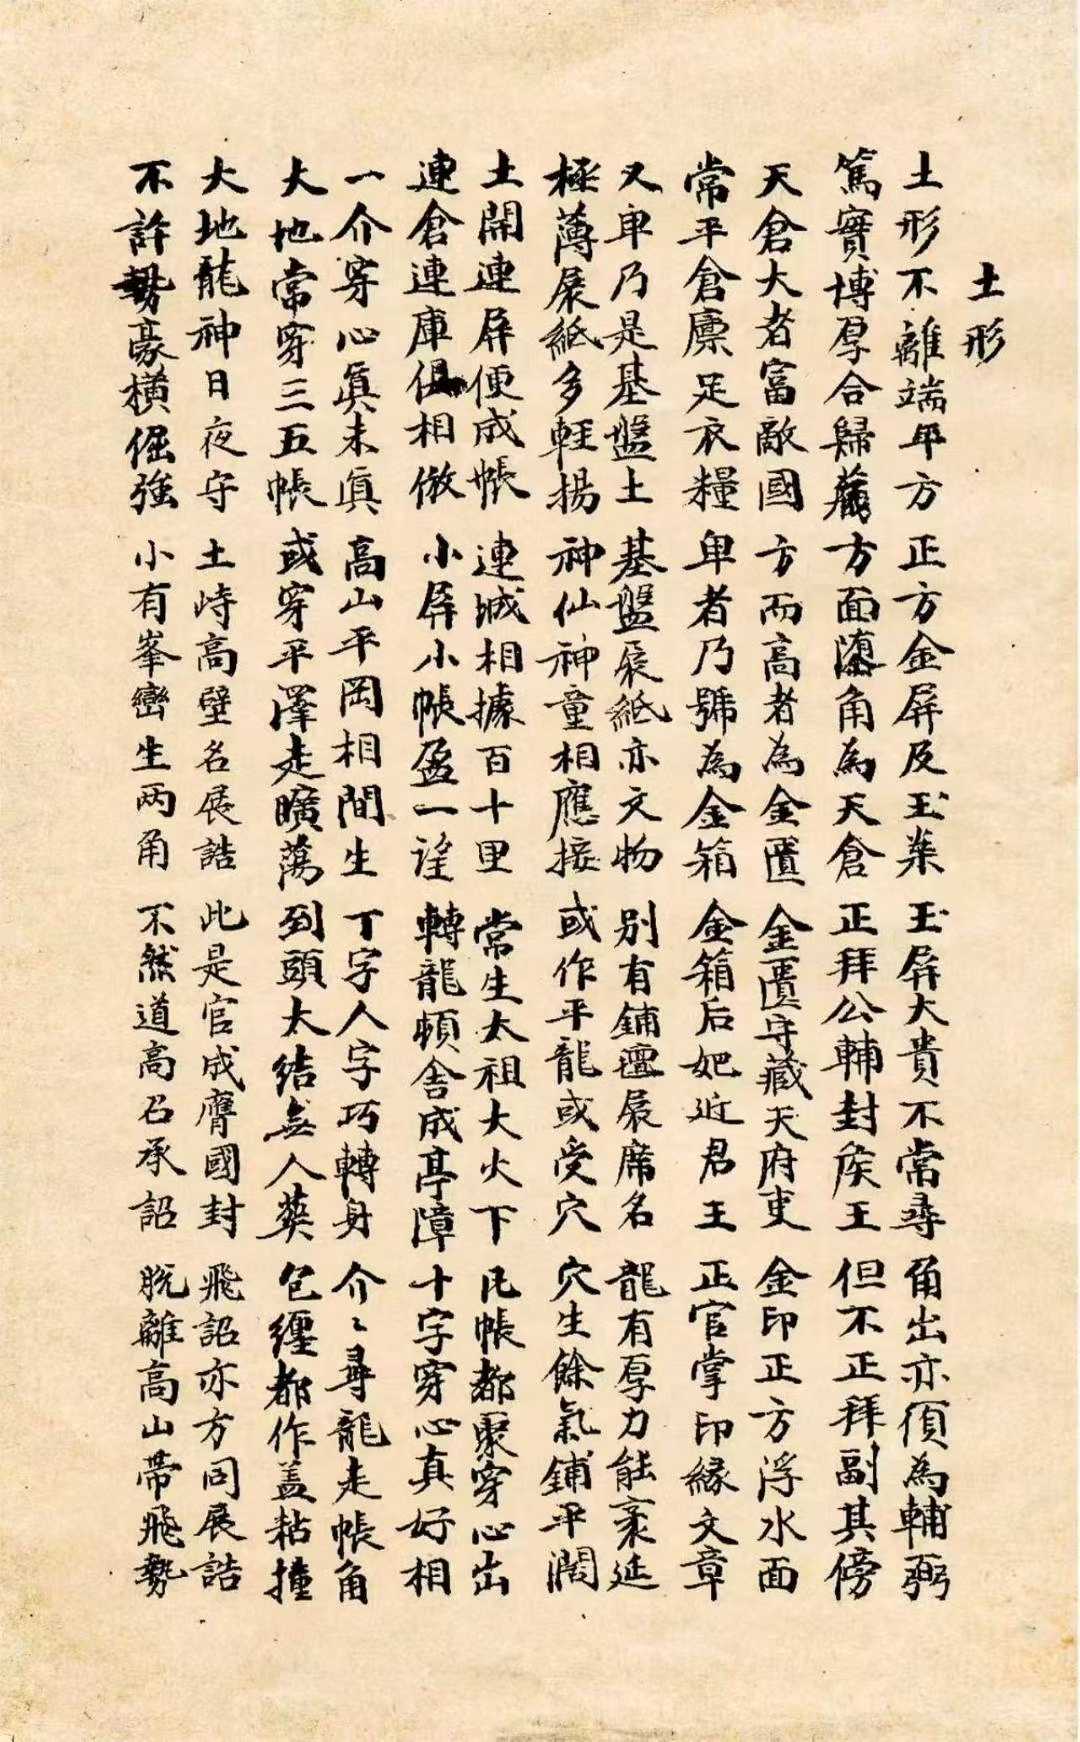 土形
土形不離端平方 正方金屏及玉案 玉屏大貴不常尋 角出亦須為輔弼
篤實博厚合歸 方面滚角為天倉 正拜公輔封侯王 但不正拜副其傍
天倉大者富敵國 方而高者為金匱 金匱守藏天府吏 金印正方浮水面
常平倉廪足衣糧 卑者乃號為金箱 金箱后妃近君王 正官掌印緣文章
又卑乃是基盤土 基盤展紙亦文物 別有鋪氊展席名 龍有厚力能袤延
極薄展紙多輕揚 神仙神童相應接 或作平龍或受穴 穴生餘氣鋪平濶
土開連屏便成帳 連城相據百十里 常生太祖大火下 凡帳都要穿心出
連倉連庫俱相倣 小屏小帳盈一望 轉龍頓舍成亭障 十字穿心真好相
一介穿心真未真 高山平岡相間生 丁字人字巧轉身 介〻尋龍走帳角
大地常穿三五帳 或穿平澤走曠蕩 到頭大結無人葬 包纏都作盖粘撞
大地龍神日夜守 土峙高壁名展誥 此是官成膺國封 飛詔亦方同展誥
不許勢豪橫倔強 小有峯巒生两角 不然道高名承詔 脫離高山帶飛勢